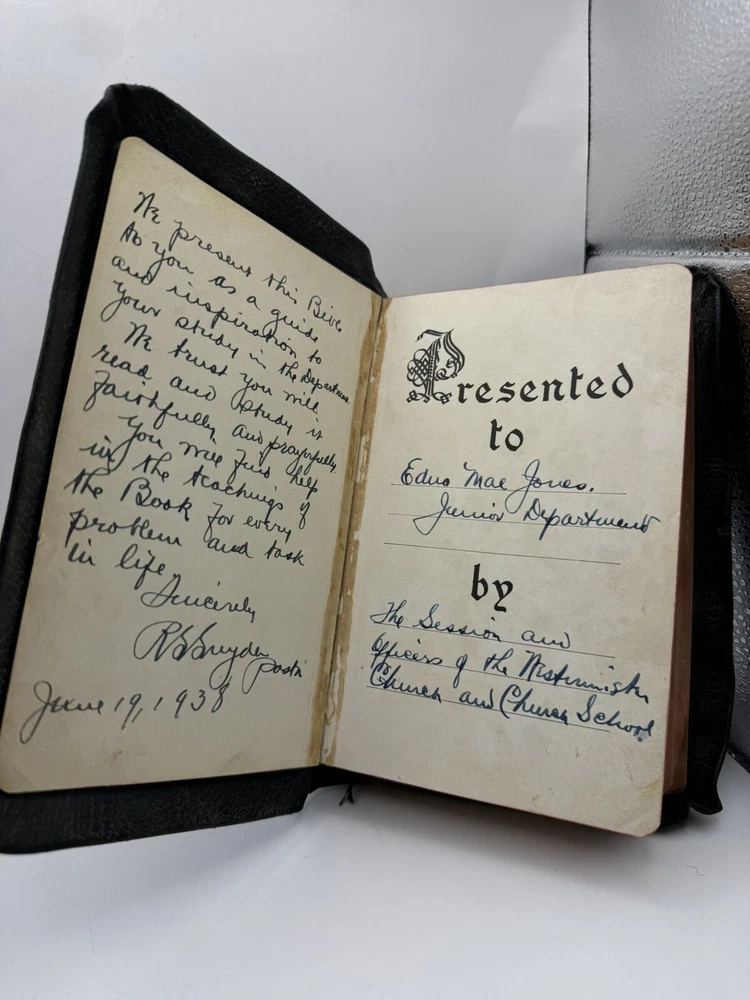 We present this Bible
to you as a guide
and inspiration to
your study in the Department.
We trust you will
read and study it
faithfully and prayerfully.
You will find help
in the teachings of
the Book for every
problem and task
in life.
Sincerely
R S Snyder
Pastor
June 19, 1938
Presented
to
Edna Mae Jones.
Junior Department
by
The Session and
Officers of the Westminster
Church and Church School